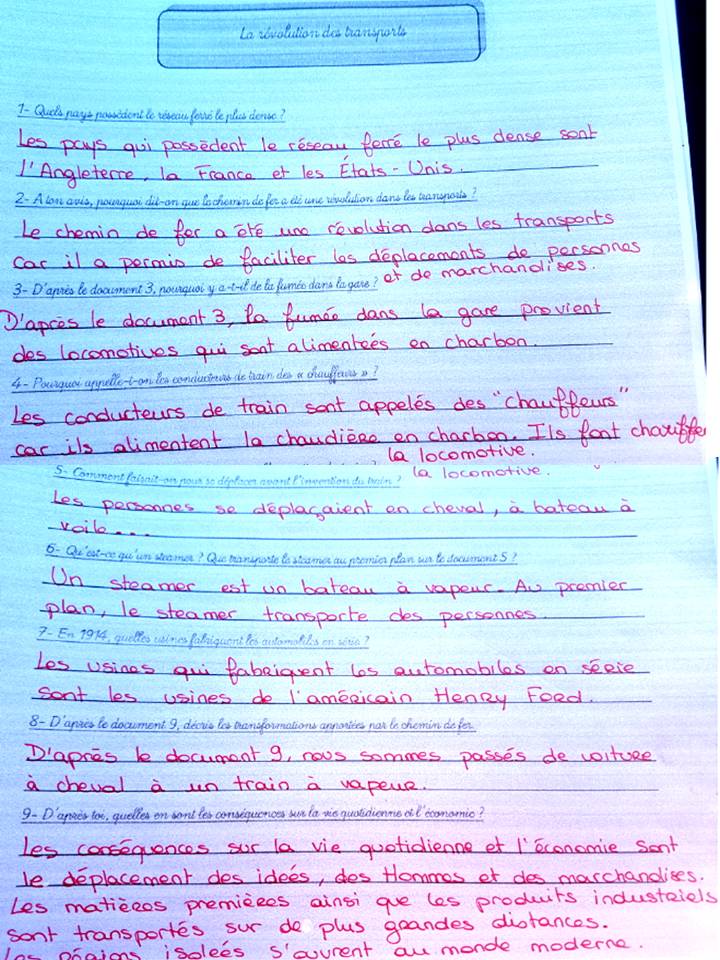 La révolution des transports
1- Quels pays possèdent le réseau ferré le plus dense ?
Les pays qui possèdent le réseau ferré le plus dense sont
l'Angleterre, la France et les États-Unis.
2- A ton avis, pourquoi dit-on que le chemin de fer a été une révolution dans les transports ?
Le chemin de fer a été une révolution dans les transports
car il a permis de faciliter les déplacements de personnes
et de marchandises.
3- D'après le document 3, pourquoi y a-t-il de la fumée dans la gare ?
D'après le document 3, la fumée dans la gare provient
des locomotives qui sont alimenteés en charbon.
4- Pourquoi appelle-t-on les conducteurs de train des « chauffeurs » ?
Les conducteurs de train sont appelés des "chauffeurs"
car ils alimentent la chaudière en charbon. Ils font chauffer
la locomotive.
la locomotive.
5- Comment faisait-on pour se déplacer avant l'invention du train ?
Les personnes se déplaçaient en cheval, à bateau à
voile...
6- Qu'est-ce qu'un steamer ? Que transporte le steamer au premier plan sur le document 5 ?
Un steamer est un bateau à vapeur. Au premier
plan, le steamer transporte des personnes.
7- En 1914, quelles usines fabriquent les automobiles en série ?
Les usines qui fabriquent les automobiles en série
sont les usines de l'américain Henry Ford.
8- D'après le document 9, décris les transformations apportées par le chemin de fer.
D'après le document 9, nous sommes passés de voiture
à cheval à un train à vapeur.
9- D'après toi, quelles en sont les conséquences sur la vie quotidienne et l'économie ?
Les conséquences sur la vie quotidienne et l'économie sont
le déplacement des ideés, des Hommes et des marchandises.
Les matières premières ainsi que les produits industriels
sont transportés sur de plus grandes distances.
Les régions isoleés s'ouvrent au monde moderne.